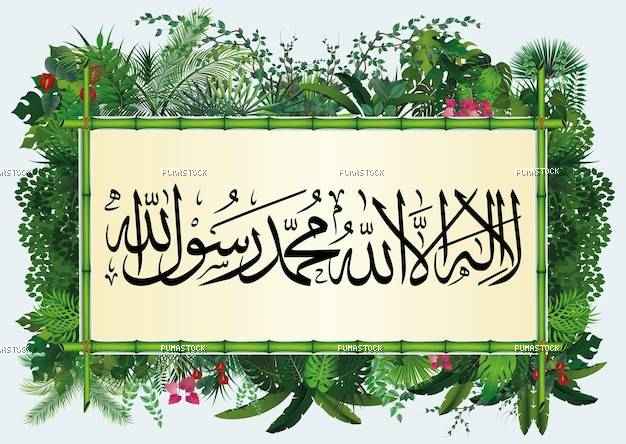 PUMASTOCK PUMASTOCK PUMASTOCK PUMASTOCK
لا إله إلا الله محمد رسول الله
PUMASTOCK PUMASTOCK PUMASTOCK PUMASTOCK